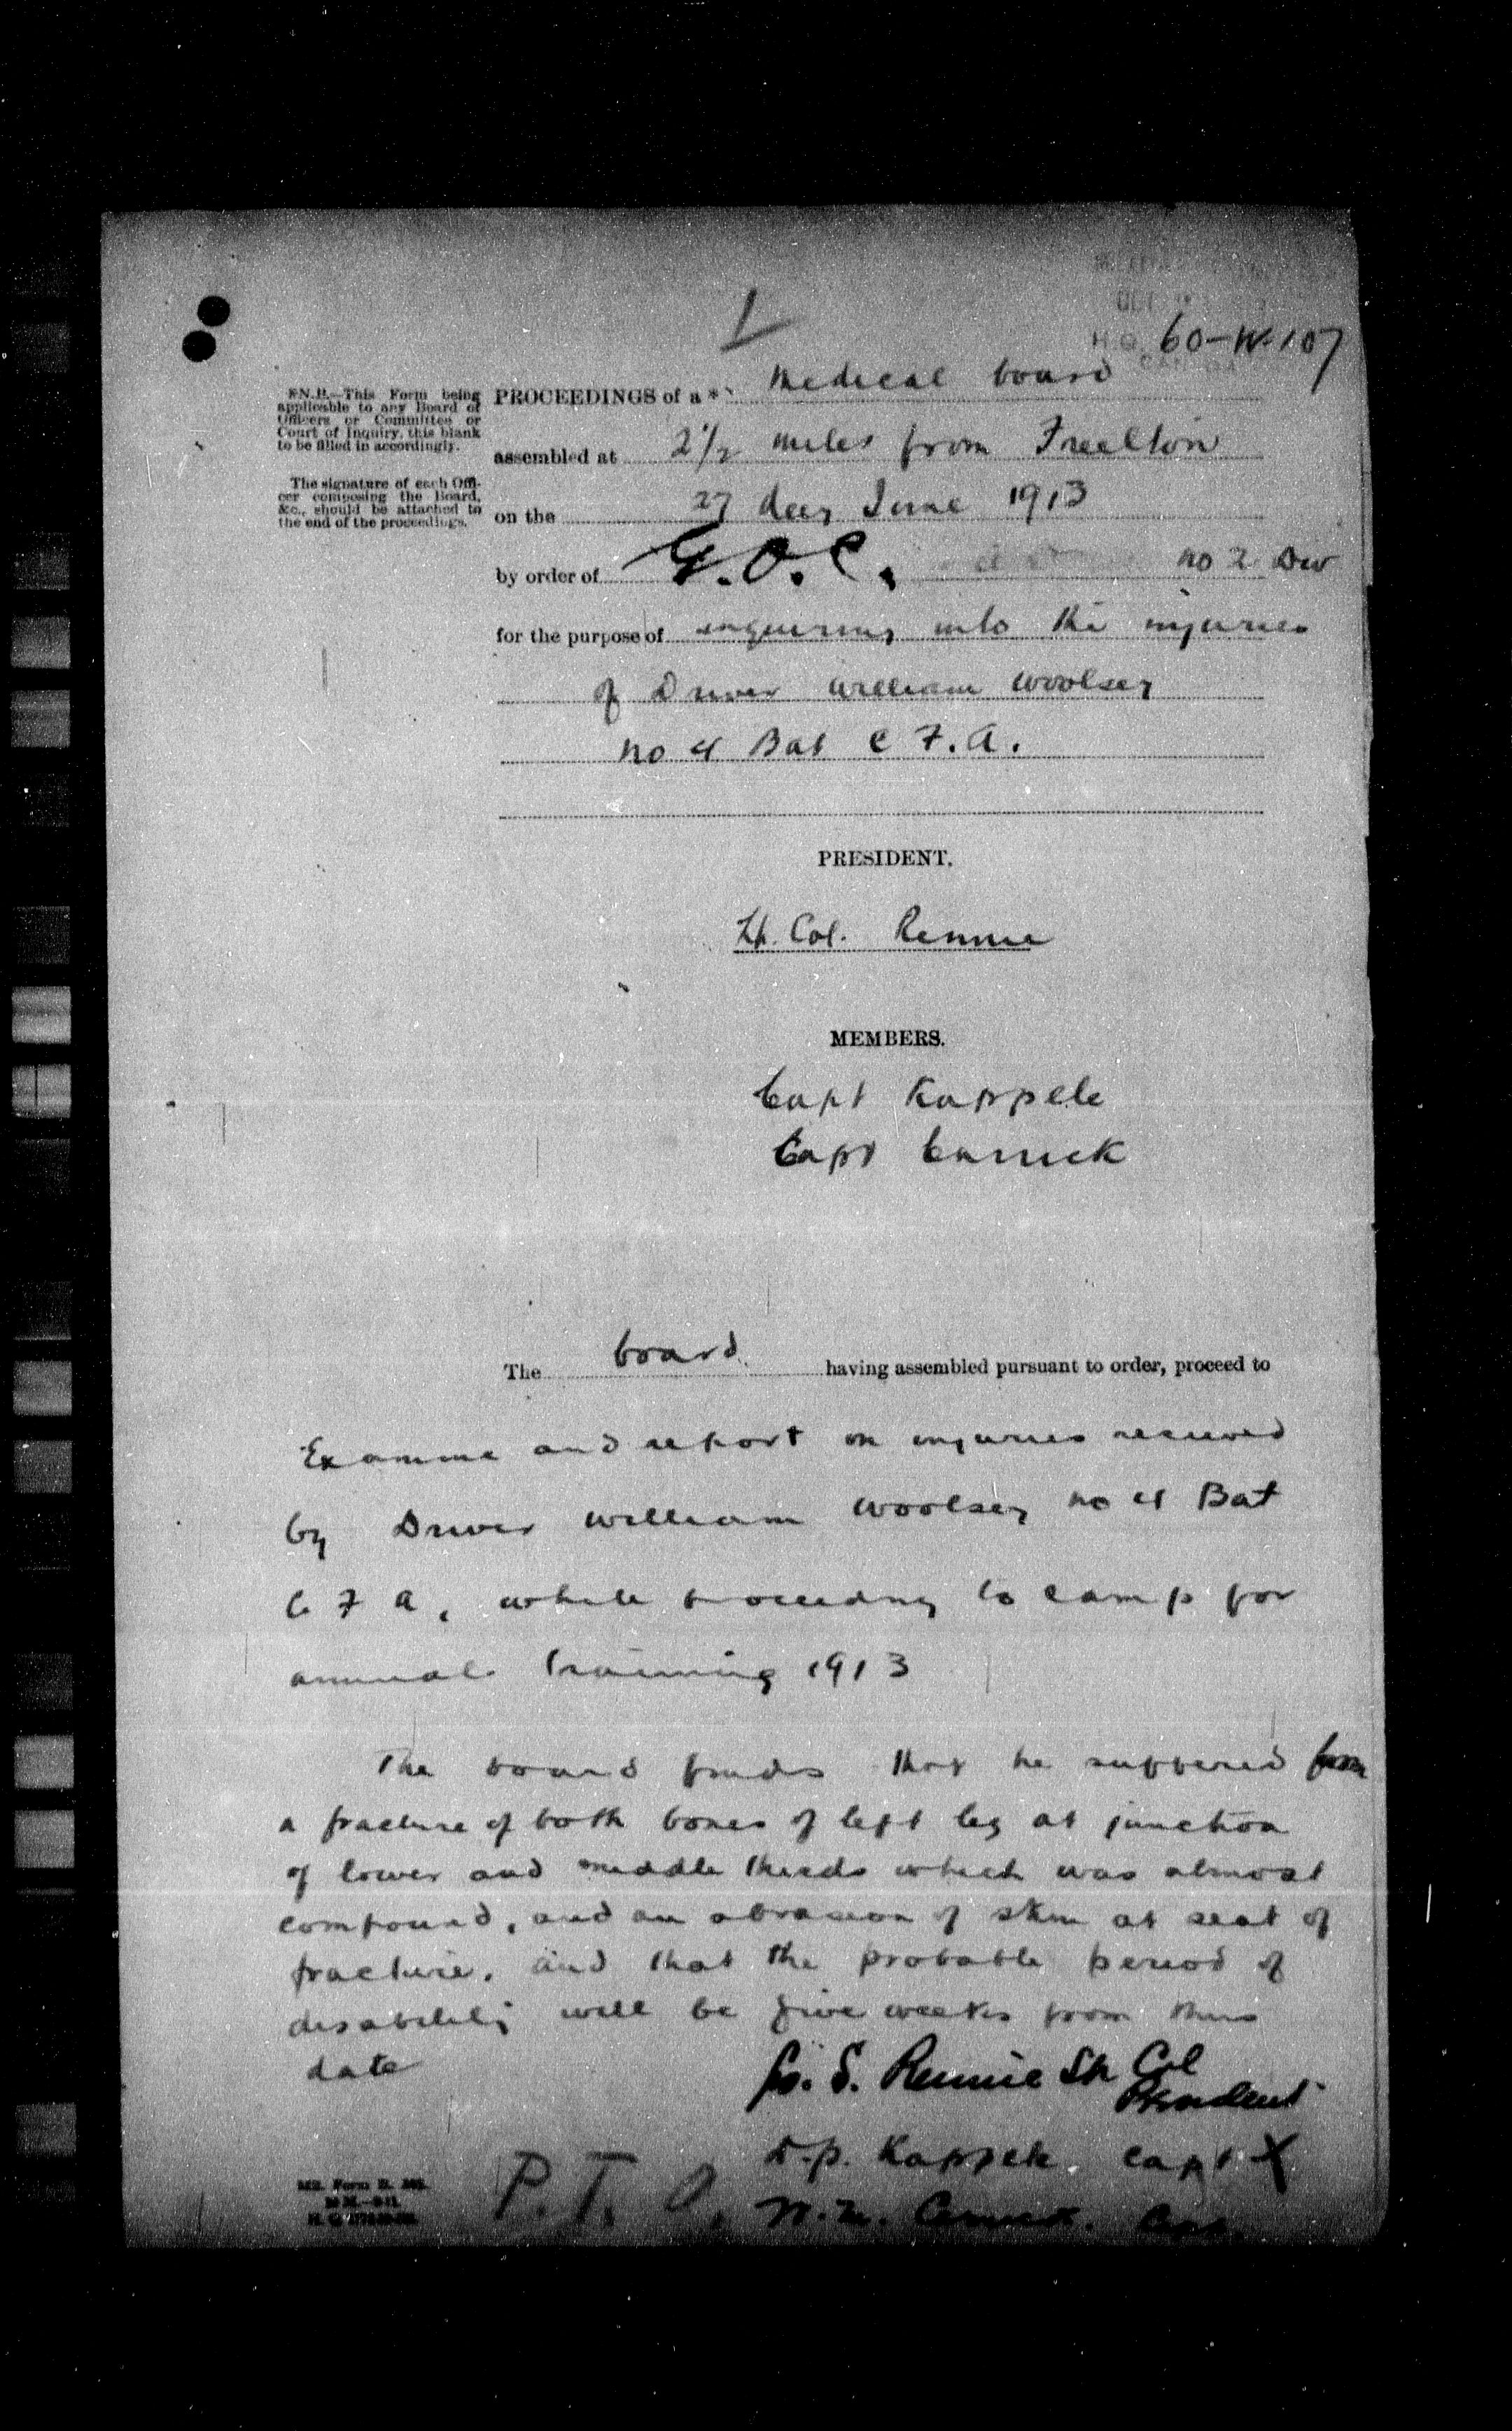 60-W-107
*N.B.—This Form being
applicable to any Board of
Officers or Committee or
Court of Inquiry, this blank
to be filled in accordingly.
The signature of each Offi-
cer composing the Board,
&c., should be attached to
the end of the proceedings.
PROCEEDINGS of a * Medical board
assembled at 2 1/2 miles from Freelton
on the 27 day June 1913
by order of G.O.C. no 2 Div
for the purpose of enquiring into the injuries
of Driver William Woolsey
no 4 Bat C F.A.
PRESIDENT.
Lt. Col. Rennie
MEMBERS.
Capt Kappele
Capt Carrick
The board having assembled pursuant to order, proceed to
Examine and report on injuries received
by Driver William Woolsey no 4 Bat
C F A, while proceeding to camp for
annual Training 1913
The board finds that he suffered from
a fracture of both bones of left leg at junction
of lower and middle thirds which was almost
compound, and an abrasion of skin at seat of
fracture, and that the probable period of
disability will be five weeks from this
date
G. S. Rennie Lt Col
President
D.P. Kappele. Capt X
P.T.O.